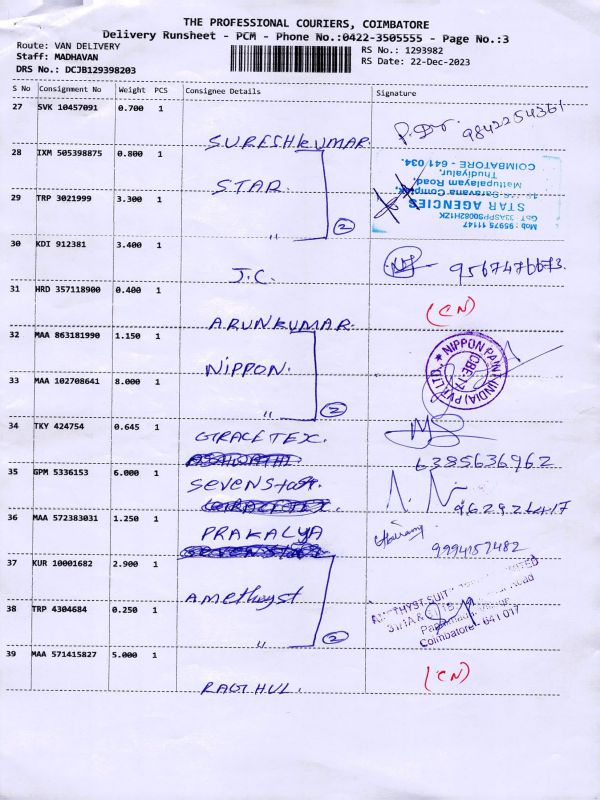 THE PROFESSIONAL COURIERS, COIMBATORE
Delivery Runsheet - PCM - Phone No.:0422-3505555 - Page No.:3
Route: VAN DELIVERY
RS No.: 1293982
Staff: MADHAVAN
RS Date: 22-Dec-2023
DRS No.: DCJB129398203
S No Consignment No Weight PCS Consignee Details Signature
27 SVK 10457091 0.700 1
SURESHKUMAR 9842254361
28 IXM 505398875 0.800 1
STAR
29 TRP 3021999 3.300 1
" 2
Mob : 95975 11147
GST: 33ASPPS0082H1ZK
STAR AGENCIES
Saravana Complex,
Mattupalayan Road,
Thudiyalur,
COIMBATORE - 641 034.
30 KDI 912381 3.400 1
J.C.
31 HRD 357118900 0.400 1
ARUNKUMAR (CN)
32 MAA 863181990 1.150 1
NIPPON.
33 MAA 102708641 8.000 1
" 2
NIPPON PAINT (INDIA) PVT. LTD. ★
CBE-17
34 TKY 424754 0.645 1
GRACE TEX. 6385636962
35 GPM 5336153 6.000 1
SEVENSTAR.
36 MAA 572383031 1.250 1
PRAKALYA 9994157482
37 KUR 10001682 2.900 1
Amethyst
38 TRP 4304684 0.250 1
" 2
Coimbatore - 641 017
39 MAA 571415827 5.000 1
RAGHUL. (CN)